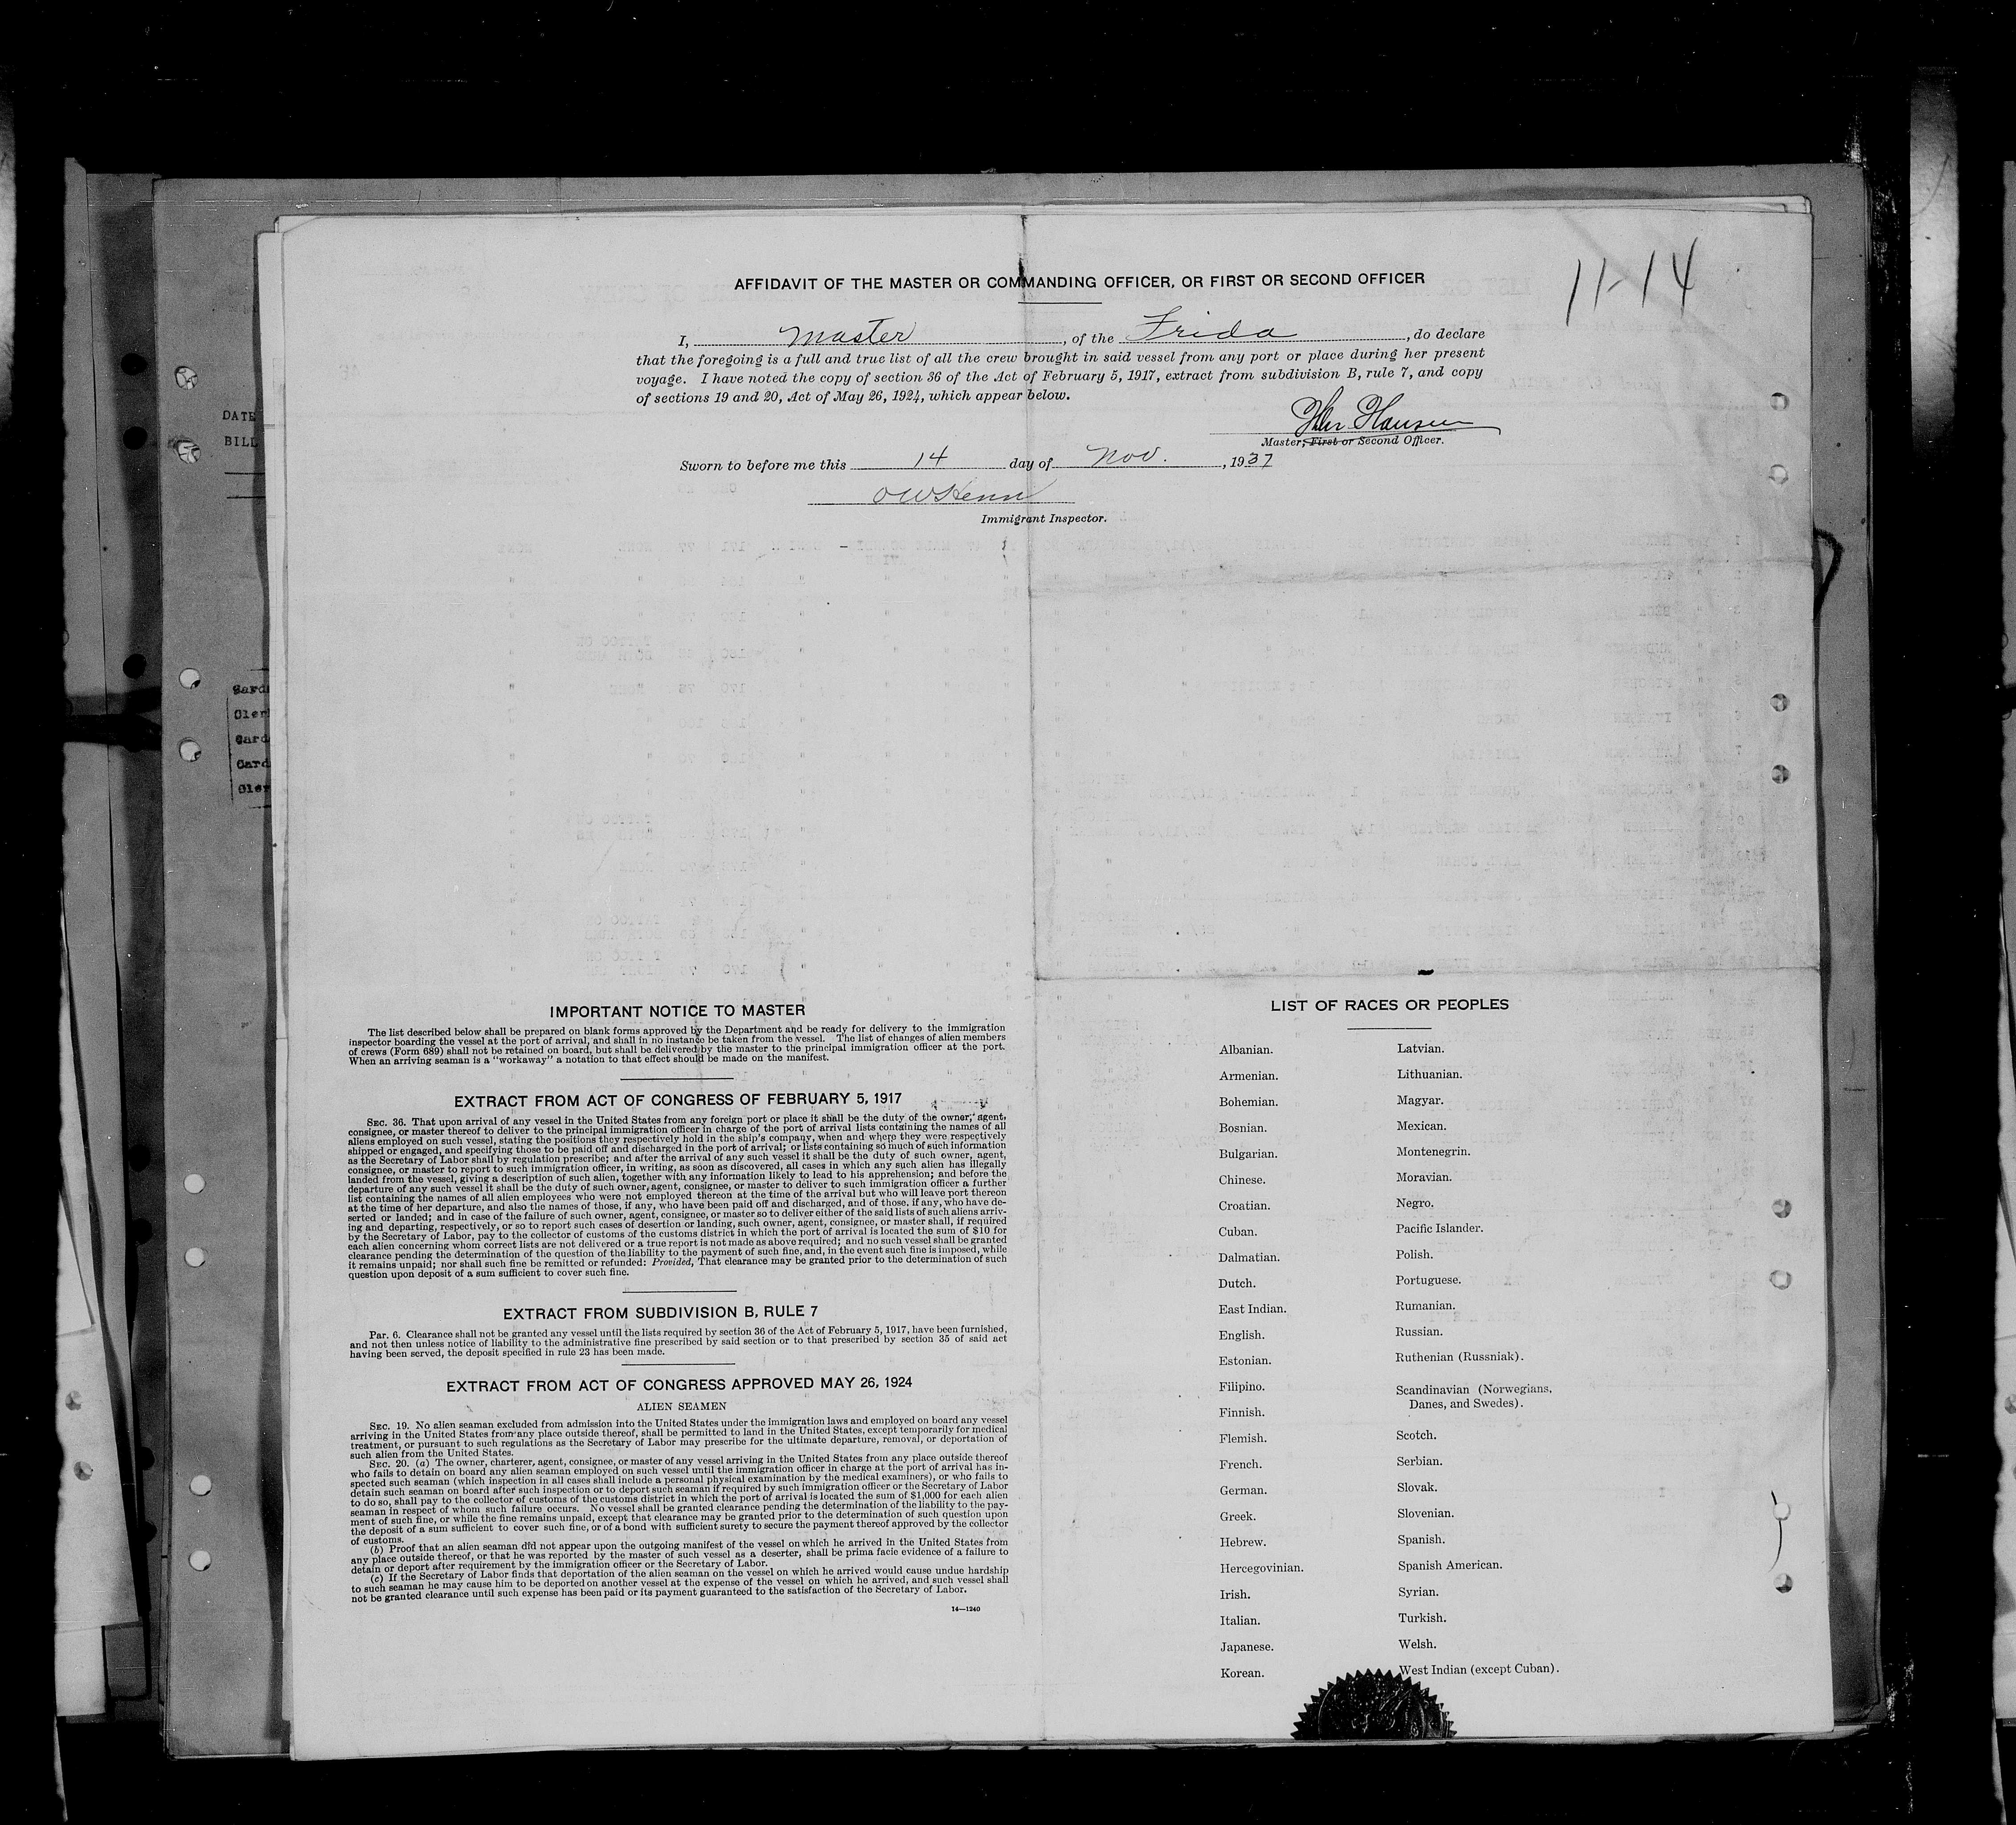 11-14
AFFIDAVIT OF THE MASTER OR COMMANDING OFFICER, OR FIRST OR SECOND OFFICER
I, Master, of the Frida, do declare
that the foregoing is a full and true list of all the crew brought in said vessel from any port or place during her present
voyage. I have noted the copy of section 36 of the Act of February 5, 1917, extract from subdivision B, rule 7, and copy
of sections 19 and 20, Act of May 26, 1924, which appear below.
Hansen
Master, First or Second Officer.
Sworn to before me this 14 day of Nov., 1937
Immigrant Inspector.
DATE
BILL
IMPORTANT NOTICE TO MASTER
The list described below shall be prepared on blank forms approved by the Department and be ready for delivery to the immigration
inspector boarding the vessel at the port of arrival, and shall in no instance be taken from the vessel. The list of changes of alien members
of crews (Form 689) shall not be retained on board, but shall be delivered by the master to the principal immigration officer at the port.
When an arriving seaman is a "workaway" a notation to that effect should be made on the manifest.
EXTRACT FROM ACT OF CONGRESS OF FEBRUARY 5, 1917
SEC. 36. That upon arrival of any vessel in the United States from any foreign port or place it shall be the duty of the owner, agent,
consignee, or master thereof to deliver to the principal immigration officer in charge of the port of arrival lists containing the names of all
aliens employed on such vessel, stating the positions they respectively hold in the ship's company, when and where they were respectively
shipped or engaged, and specifying those to be paid off and discharged in the port of arrival; or lists containing so much of such information
as the Secretary of Labor shall by regulation prescribe; and after the arrival of any such vessel it shall be the duty of such owner, agent,
consignee, or master to report to such immigration officer, in writing, as soon as discovered, all cases in which any such alien has illegally
landed from the vessel, giving a description of such alien, together with any information likely to lead to his apprehension; and before the
departure of any such vessel it shall be the duty of such owner, agent, consignee, or master to deliver to such immigration officer a further
list containing the names of all alien employees who were not employed thereon at the time of the arrival but who will leave port thereon
at the time of her departure, and also the names of those, if any, who have been paid off and discharged, and of those, if any, who have de-
serted or landed; and in case of the failure of such owner, agent, consignee, or master so to deliver either of the said lists of such aliens arriv-
ing and departing, respectively, or so to report such cases of desertion or landing, such owner, agent, consignee, or master shall, if required
by the Secretary of Labor, pay to the collector of customs of the customs district in which the port of arrival is located the sum of $10 for
each alien concerning whom correct lists are not delivered or a true report is not made as above required; and no such vessel shall be granted
clearance pending the determination of the question of the liability to the payment of such fine, and, in the event such fine is imposed, while
it remains unpaid; nor shall such fine be remitted or refunded: Provided, That clearance may be granted prior to the determination of such
question upon deposit of a sum sufficient to cover such fine.
EXTRACT FROM SUBDIVISION B, RULE 7
Par. 6. Clearance shall not be granted any vessel until the lists required by section 36 of the Act of February 5, 1917, have been furnished,
and not then unless notice of liability to the administrative fine prescribed by said section or to that prescribed by section 35 of said act
having been served, the deposit specified in rule 23 has been made.
EXTRACT FROM ACT OF CONGRESS APPROVED MAY 26, 1924
ALIEN SEAMEN
SEC. 19. No alien seaman excluded from admission into the United States under the immigration laws and employed on board any vessel
arriving in the United States from any place outside thereof, shall be permitted to land in the United States, except temporarily for medical
treatment, or pursuant to such regulations as the Secretary of Labor may prescribe for the ultimate departure, removal, or deportation of
such alien from the United States.
SEC. 20. (a) The owner, charterer, agent, consignee, or master of any vessel arriving in the United States from any place outside thereof
who fails to detain on board any alien seaman employed on such vessel until the immigration officer in charge at the port of arrival has in-
spected such seaman (which inspection in all cases shall include a personal physical examination by the medical examiners), or who fails to
detain such seaman on board after such inspection or to deport such seaman if required by such immigration officer or the Secretary of Labor
to do so, shall pay to the collector of customs of the customs district in which the port of arrival is located the sum of $1,000 for each alien
seaman in respect of whom such failure occurs. No vessel shall be granted clearance pending the determination of the liability to the pay-
ment of such fine, or while the fine remains unpaid, except that clearance may be granted prior to the determination of such question upon
the deposit of a sum sufficient to cover such fine, or of a bond with sufficient surety to secure the payment thereof approved by the collector
of customs.
(b) Proof that an alien seaman did not appear upon the outgoing manifest of the vessel on which he arrived in the United States from
any place outside thereof, or that he was reported by the master of such vessel as a deserter, shall be prima facie evidence of a failure to
detain or deport after requirement by the immigration officer or the Secretary of Labor.
(c) If the Secretary of Labor finds that deportation of the alien seaman on the vessel on which he arrived would cause undue hardship
to such seaman he may cause him to be deported on another vessel at the expense of the vessel on which he arrived, and such vessel shall
not be granted clearance until such expense has been paid or its payment guaranteed to the satisfaction of the Secretary of Labor.
14—1240
LIST OF RACES OR PEOPLES
Albanian.
Armenian.
Bohemian.
Bosnian.
Bulgarian.
Chinese.
Croatian.
Cuban.
Dalmatian.
Dutch.
East Indian.
English.
Estonian.
Filipino.
Finnish.
Flemish.
French.
German.
Greek.
Hebrew.
Hercegovinian.
Irish.
Italian.
Japanese.
Korean.
Latvian.
Lithuanian.
Magyar.
Mexican.
Montenegrin.
Moravian.
Negro.
Pacific Islander.
Polish.
Portuguese.
Rumanian.
Russian.
Ruthenian (Russniak).
Scandinavian (Norwegians,
Danes, and Swedes).
Scotch.
Serbian.
Slovak.
Slovenian.
Spanish.
Spanish American.
Syrian.
Turkish.
Welsh.
West Indian (except Cuban).